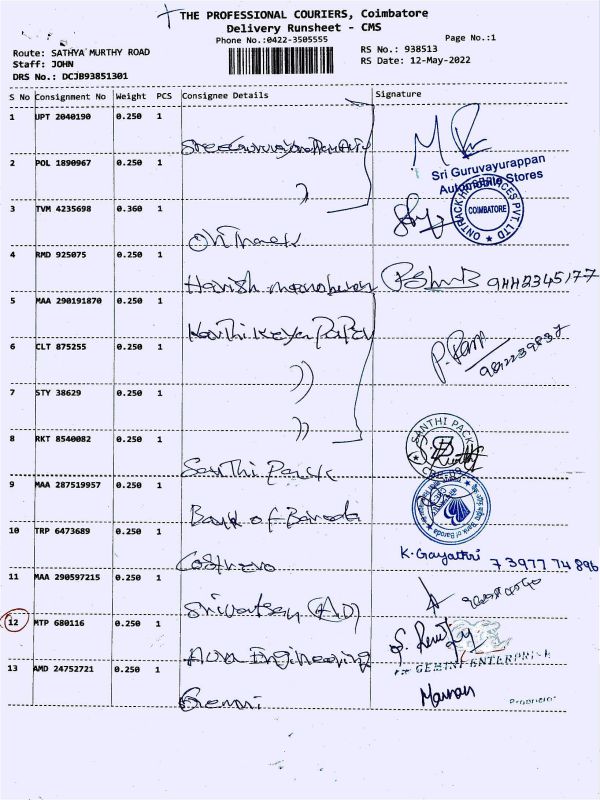 THE PROFESSIONAL COURIERS, Coimbatore
Delivery Runsheet - CMS
Phone No.:0422-3505555
Page No.:1
Route: SATHYA MURTHY ROAD
RS No.: 938513
Staff: JOHN
RS Date: 12-May-2022
DRS No.: DCJB93851301
S No Consignment No Weight PCS Consignee Details Signature
1 UPT 2040190 0.250 1
Sri Guruvayurappan
Automobile Stores
2 POL 1890967 0.250 1
3 TVM 4235698 0.360 1
ONTRACK HR SERVICES PVT. LTD
COIMBATORE
Ontrack
4 RMD 925075 0.250 1
Harish manoharan 9442345177
5 MAA 290191870 0.250 1
Karthikeya Paper
6 CLT 875255 0.250 1
7 STY 38629 0.250 1
8 RKT 8540082 0.250 1
SANTHI PACK
Santhi Pack
9 MAA 287519957 0.250 1
Bank of Baroda
Bank of Baroda
10 TRP 6473689 0.250 1
K. Gayathri
7 3977 74 896
11 MAA 290597215 0.250 1
Srivatsan (AD)
12 MTP 680116 0.250 1
Engineering
GEMINI ENTERPRISE
13 AMD 24752721 0.250 1
Gemini
Proprietor